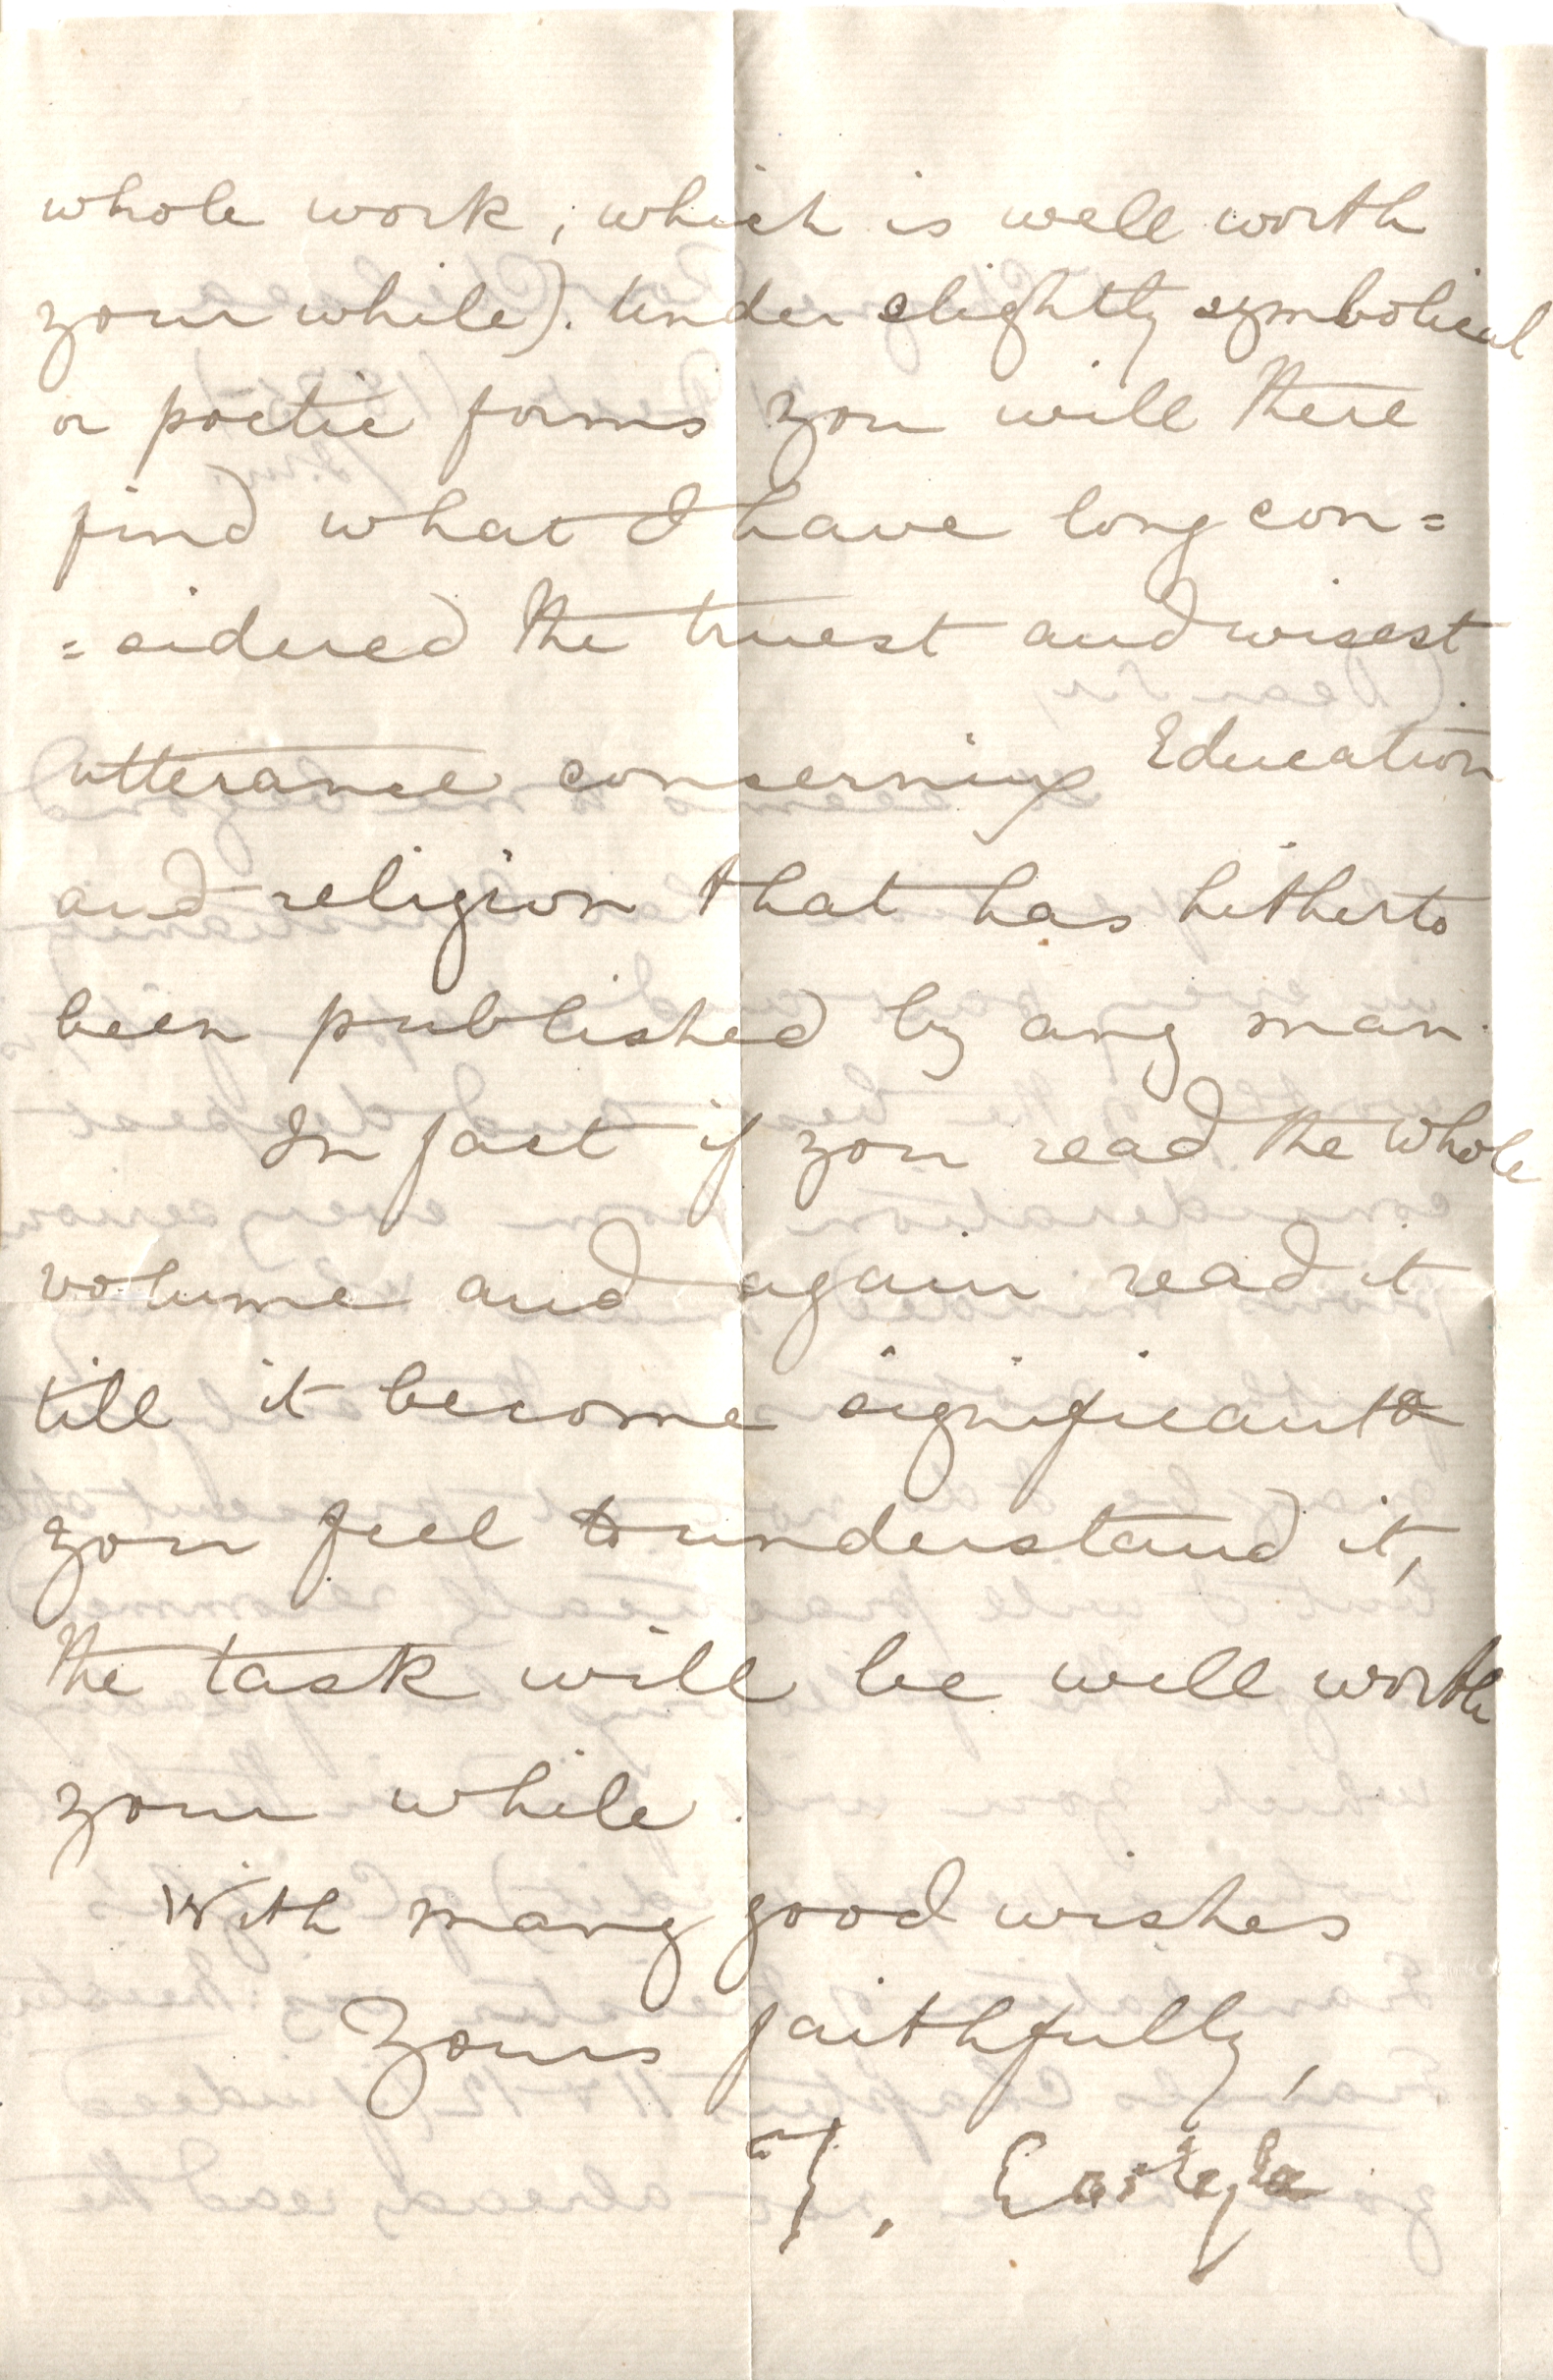 whole work, which is well worth
your while). Under slightly symbolical
or poetic forms you will there
find what I have long con=
=sidered the truest and wisest
utterance concerning Education
and religion that has hitherto
been published by any man.
In fact if you read the whole
volume and again read it
till it become significant &
you feel to understand it,
the task will be well worth
your while.
With many good wishes
Yours faithfully,
T. Carlyle